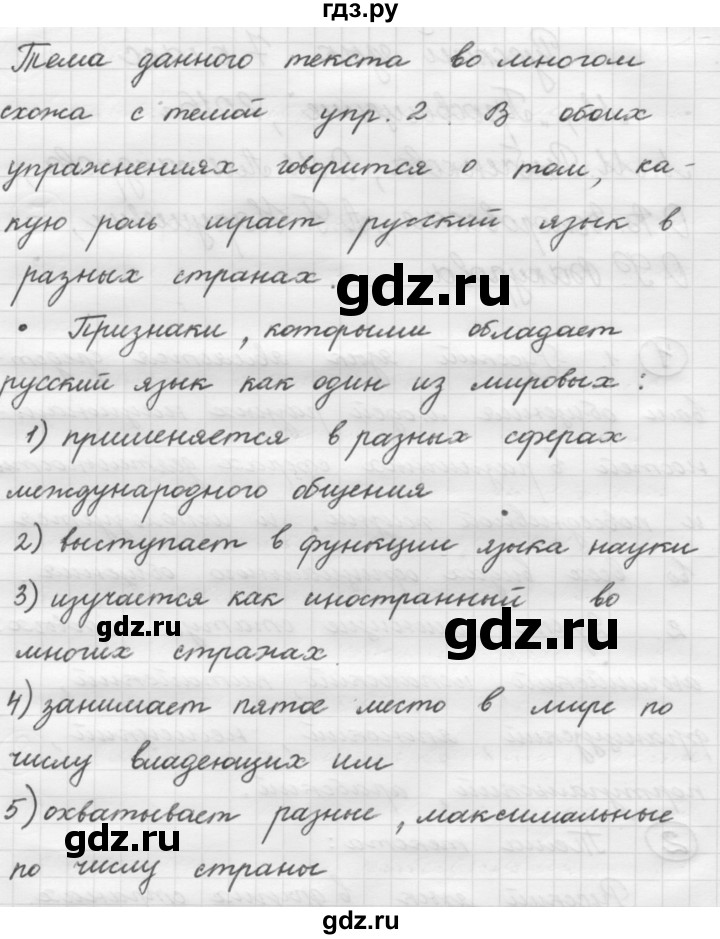 гдз.ру
Тема данного текста во многом
схожа с темой упр. 2. В обоих
упражнениях говорится о том, ка-
кую роль играет русский язык в
разных странах.
gdz.ru
• Признаки, которыми обладает
русский язык как один из мировых:
1) применяется в разных сферах
международного общения
2) выступает в функции языка науки
3) изучается как иностранный во
gdz.ru
gdz.ru
многих странах
4) занимает пятое место в мире по
числу владеющих им
5) охватывает разные, максимальные
gdz.ru
по числу страны
gdz.ru